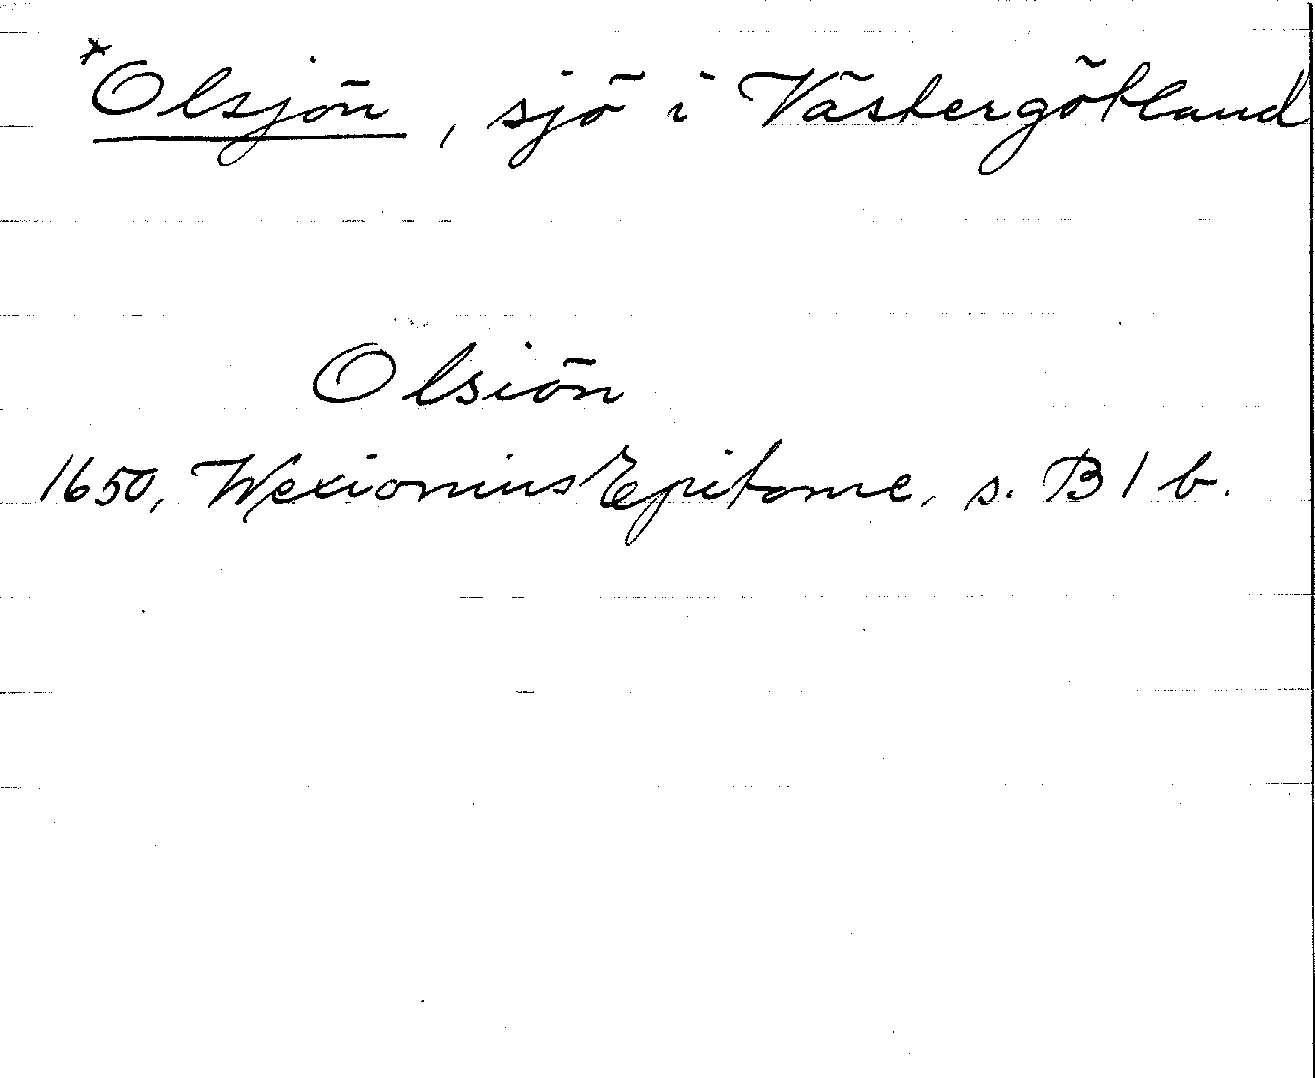 *Olsjön, sjö i Västergötland
Olsiön
1650, Wexionius Epitome, s. B 1 b.